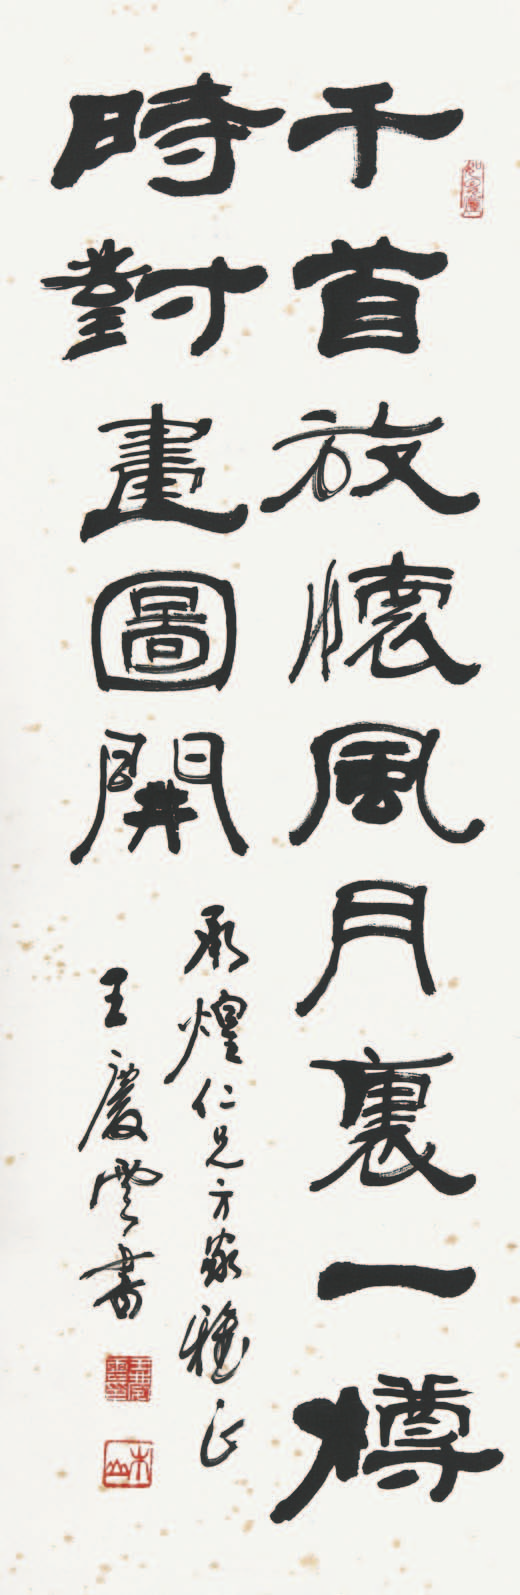 千首放懷風月裏一樽
時對畫圖開
承煌仁兄方家雅正
王慶雲書